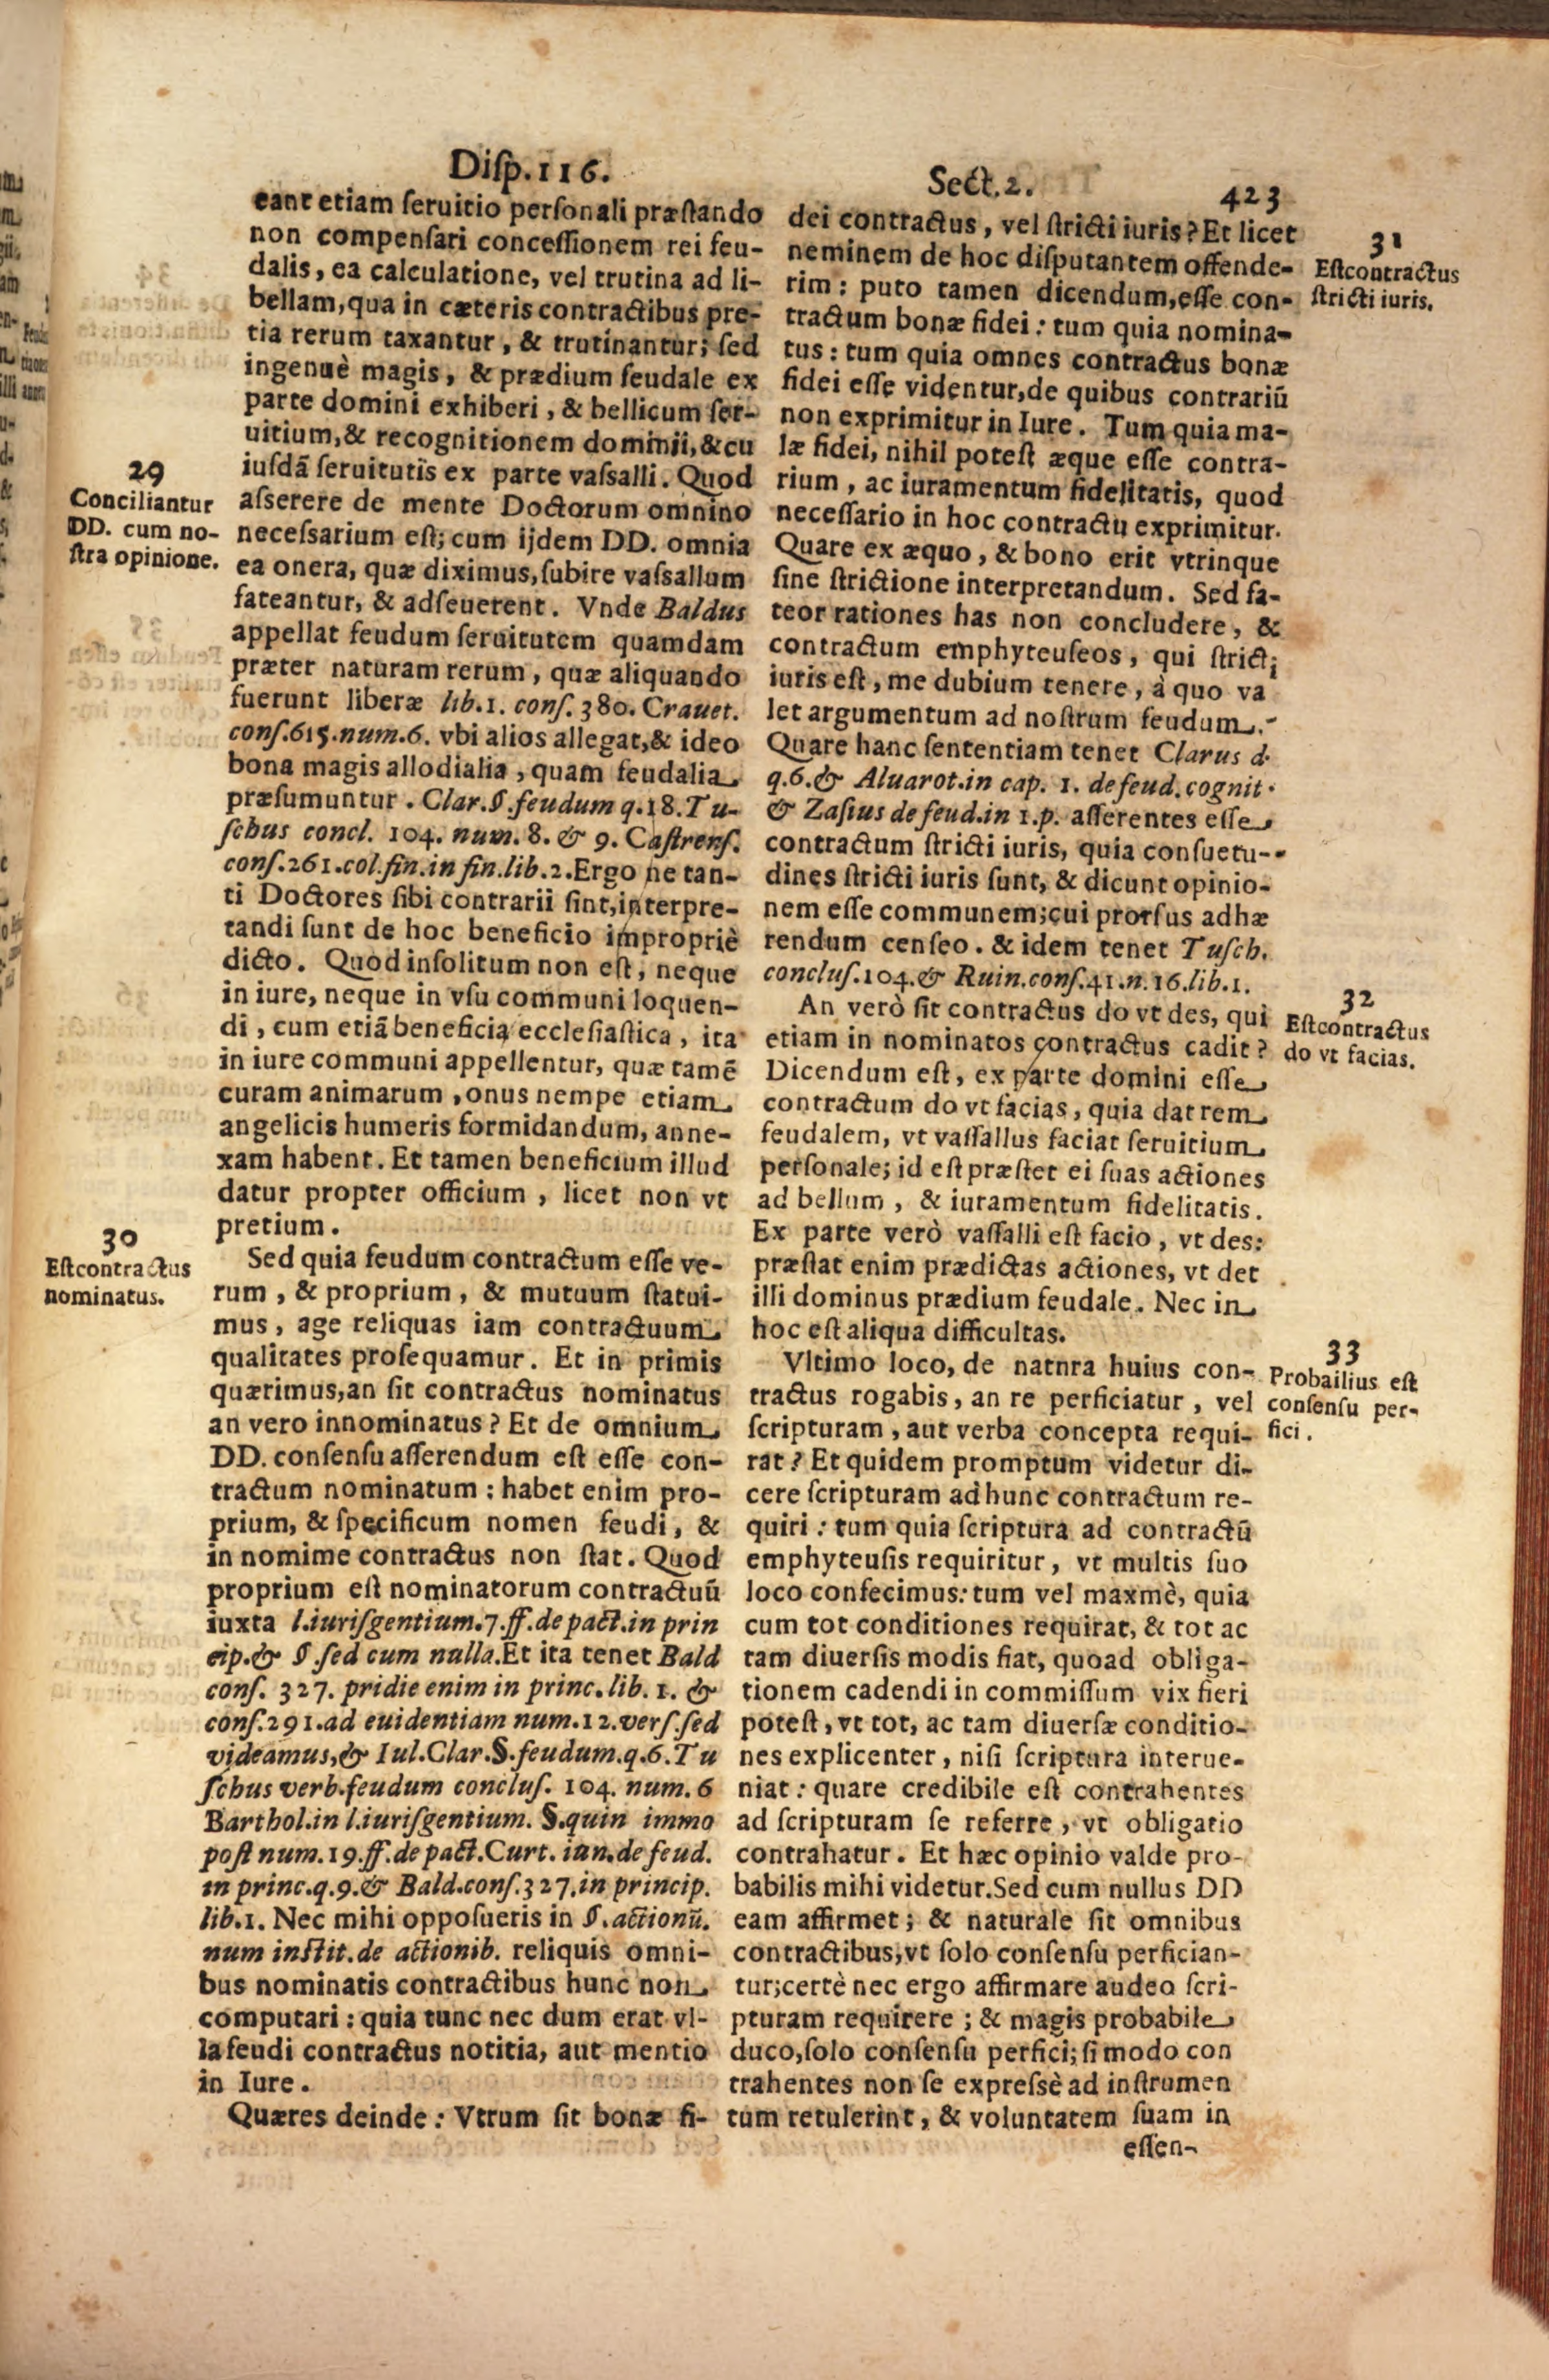 Diſp.116.
Sect.2.
423
eant etiam ſeruitio perſonali præſtando
non compenſari conceſſionem rei feu-
dalis, ea calculatione, vel trutina ad li-
bellam, qua in cæteris contractibus pre-
tia rerum taxantur, & trutinantur; ſed
ingenuè magis, & prædium feudale ex
parte domini exhiberi, & bellicum ſer-
uitium, & recognitionem dominii, & cu
iuſdã ſeruitutis ex parte vaſsalli. Quod
29
Conciliantur
DD. cum no-
ſtra opinione.
aſserere de mente Doctorum omnino
neceſsarium eſt; cum ijdem DD. omnia
ea onera, quæ diximus, ſubire vaſsallum
fateantur, & adſeuerent. Vnde Baldus
appellat feudum ſeruitutem quamdam
præter naturam rerum, quæ aliquando
fuerunt liberæ lib.1. conſ. 380. Crauet.
conſ.615.num.6. vbi alios allegat, & ideo
bona magis allodialia, quam feudalia
præſumuntur. Clar.§.feudum q.18.Tu-
ſchus concl. 104. num. 8. & 9. Caſtrenſ.
conſ.261.col.fin.in fin.lib.2.Ergo ne tan-
ti Doctores ſibi contrarii ſint, interpre-
tandi ſunt de hoc beneficio impropriè
dicto. Quod inſolitum non eſt, neque
in iure, neque in vſu communi loquen-
di, cum etiã beneficia eccleſiaſtica, ita
in iure communi appellentur, quæ tamẽ
curam animarum, onus nempe etiam
angelicis humeris formidandum, anne-
xam habent. Et tamen beneficium illud
datur propter officium, licet non vt
pretium.
30
Eſt contractus
nominatus.
Sed quia feudum contractum eſſe ve-
rum, & proprium, & mutuum ſtatui-
mus, age reliquas iam contractuum
qualitates proſequamur. Et in primis
quærimus, an ſit contractus nominatus
an vero innominatus? Et de omnium
DD. conſenſu aſſerendum eſt eſſe con-
tractum nominatum: habet enim pro-
prium, & ſpecificum nomen feudi, &
in nomime contractus non ſtat. Quod
proprium eſt nominatorum contractuũ
iuxta l.iuriſgentium.7.ff.de pact.in prin
cip.& §.ſed cum nulla.Et ita tenet Bald
conſ. 327. pridie enim in princ. lib. 1. &
conſ.291.ad euidentiam num.12.verſ.ſed
videamus, & Iul.Clar.§.feudum.q.6.Tu
ſchus verb.feudum concluſ. 104. num. 6
Barthol.in l.iuriſgentium. §.quin immo
poſt num.19.ff.de pact.Curt. iun.de feud.
in princ.q.9.& Bald.conſ.327.in princip.
lib.1. Nec mihi oppoſueris in §.actionũ.
num inſtit.de actionib. reliquis omni-
bus nominatis contractibus hunc non
computari: quia tunc nec dum erat vl-
la feudi contractus notitia, aut mentio
in Iure.
Quæres deinde: Vtrum ſit bonæ fi-
dei contractus, vel ſtricti iuris? Et licet
neminem de hoc diſputantem offende-
rim: puto tamen dicendum, eſſe con-
tractum bonæ fidei: tum quia nomina-
tus: tum quia omnes contractus bonæ
fidei eſſe videntur, de quibus contrariũ
non exprimitur in Iure. Tum quia ma-
læ fidei, nihil poteſt æque eſſe contra-
rium, ac iuramentum fidelitatis, quod
neceſſario in hoc contractu exprimitur.
Quare ex æquo, & bono erit vtrinque
ſine ſtrictione interpretandum. Sed fa-
teor rationes has non concludere, &
contractum emphyteuſeos, qui ſtricti
iuris eſt, me dubium tenere, à quo va
let argumentum ad noſtrum feudum.
Quare hanc ſententiam tenet Clarus d.
q.6.& Aluarot.in cap. 1. de feud. cognit.
& Zaſius de feud.in 1.p. aſſerentes eſſe
contractum ſtricti iuris, quia conſuetu-
dines ſtricti iuris ſunt, & dicunt opinio-
nem eſſe communem; cui prorſus adhæ
rendum cenſeo. & idem tenet Tuſch.
concluſ.104.& Ruin.conſ.41.n.16.lib.1.
31
Eſt contractus
ſtricti iuris.
An verò ſit contractus do vt des, qui
etiam in nominatos contractus cadit?
Dicendum eſt, ex parte domini eſſe
contractum do vt facias, quia dat rem
feudalem, vt vaſſallus faciat ſeruitium
perſonale; id eſt præſtet ei ſuas actiones
ad bellum, & iuramentum fidelitatis.
Ex parte verò vaſſalli eſt facio, vt des:
præſtat enim prædictas actiones, vt det
illi dominus prædium feudale. Nec in
hoc eſt aliqua difficultas.
32
Eſt contractus
do vt facias.
Vltimo loco, de natnra huius con-
tractus rogabis, an re perficiatur, vel
ſcripturam, aut verba concepta requi-
rat? Et quidem promptum videtur di-
cere ſcripturam ad hunc contractum re-
quiri: tum quia ſcriptura ad contractũ
emphyteuſis requiritur, vt multis ſuo
loco confecimus: tum vel maxmè, quia
cum tot conditiones requirat, & tot ac
tam diuerſis modis fiat, quoad obliga-
tionem cadendi in commiſſum vix fieri
poteſt, vt tot, ac tam diuerſæ conditio-
nes explicenter, niſi ſcriptura interue-
niat: quare credibile eſt contrahentes
ad ſcripturam ſe referre, vt obligatio
contrahatur. Et hæc opinio valde pro-
babilis mihi videtur. Sed cum nullus DD
eam affirmet; & naturale ſit omnibus
contractibus, vt ſolo conſenſu perfician-
tur; certè nec ergo affirmare audeo ſcri-
pturam requirere; & magis probabile
duco, ſolo conſenſu perfici; ſi modo con
trahentes non ſe expreſsè ad inſtrumen
tum retulerint, & voluntatem ſuam in
eſſen-
33
Probailius eſt
conſenſu per-
fici.